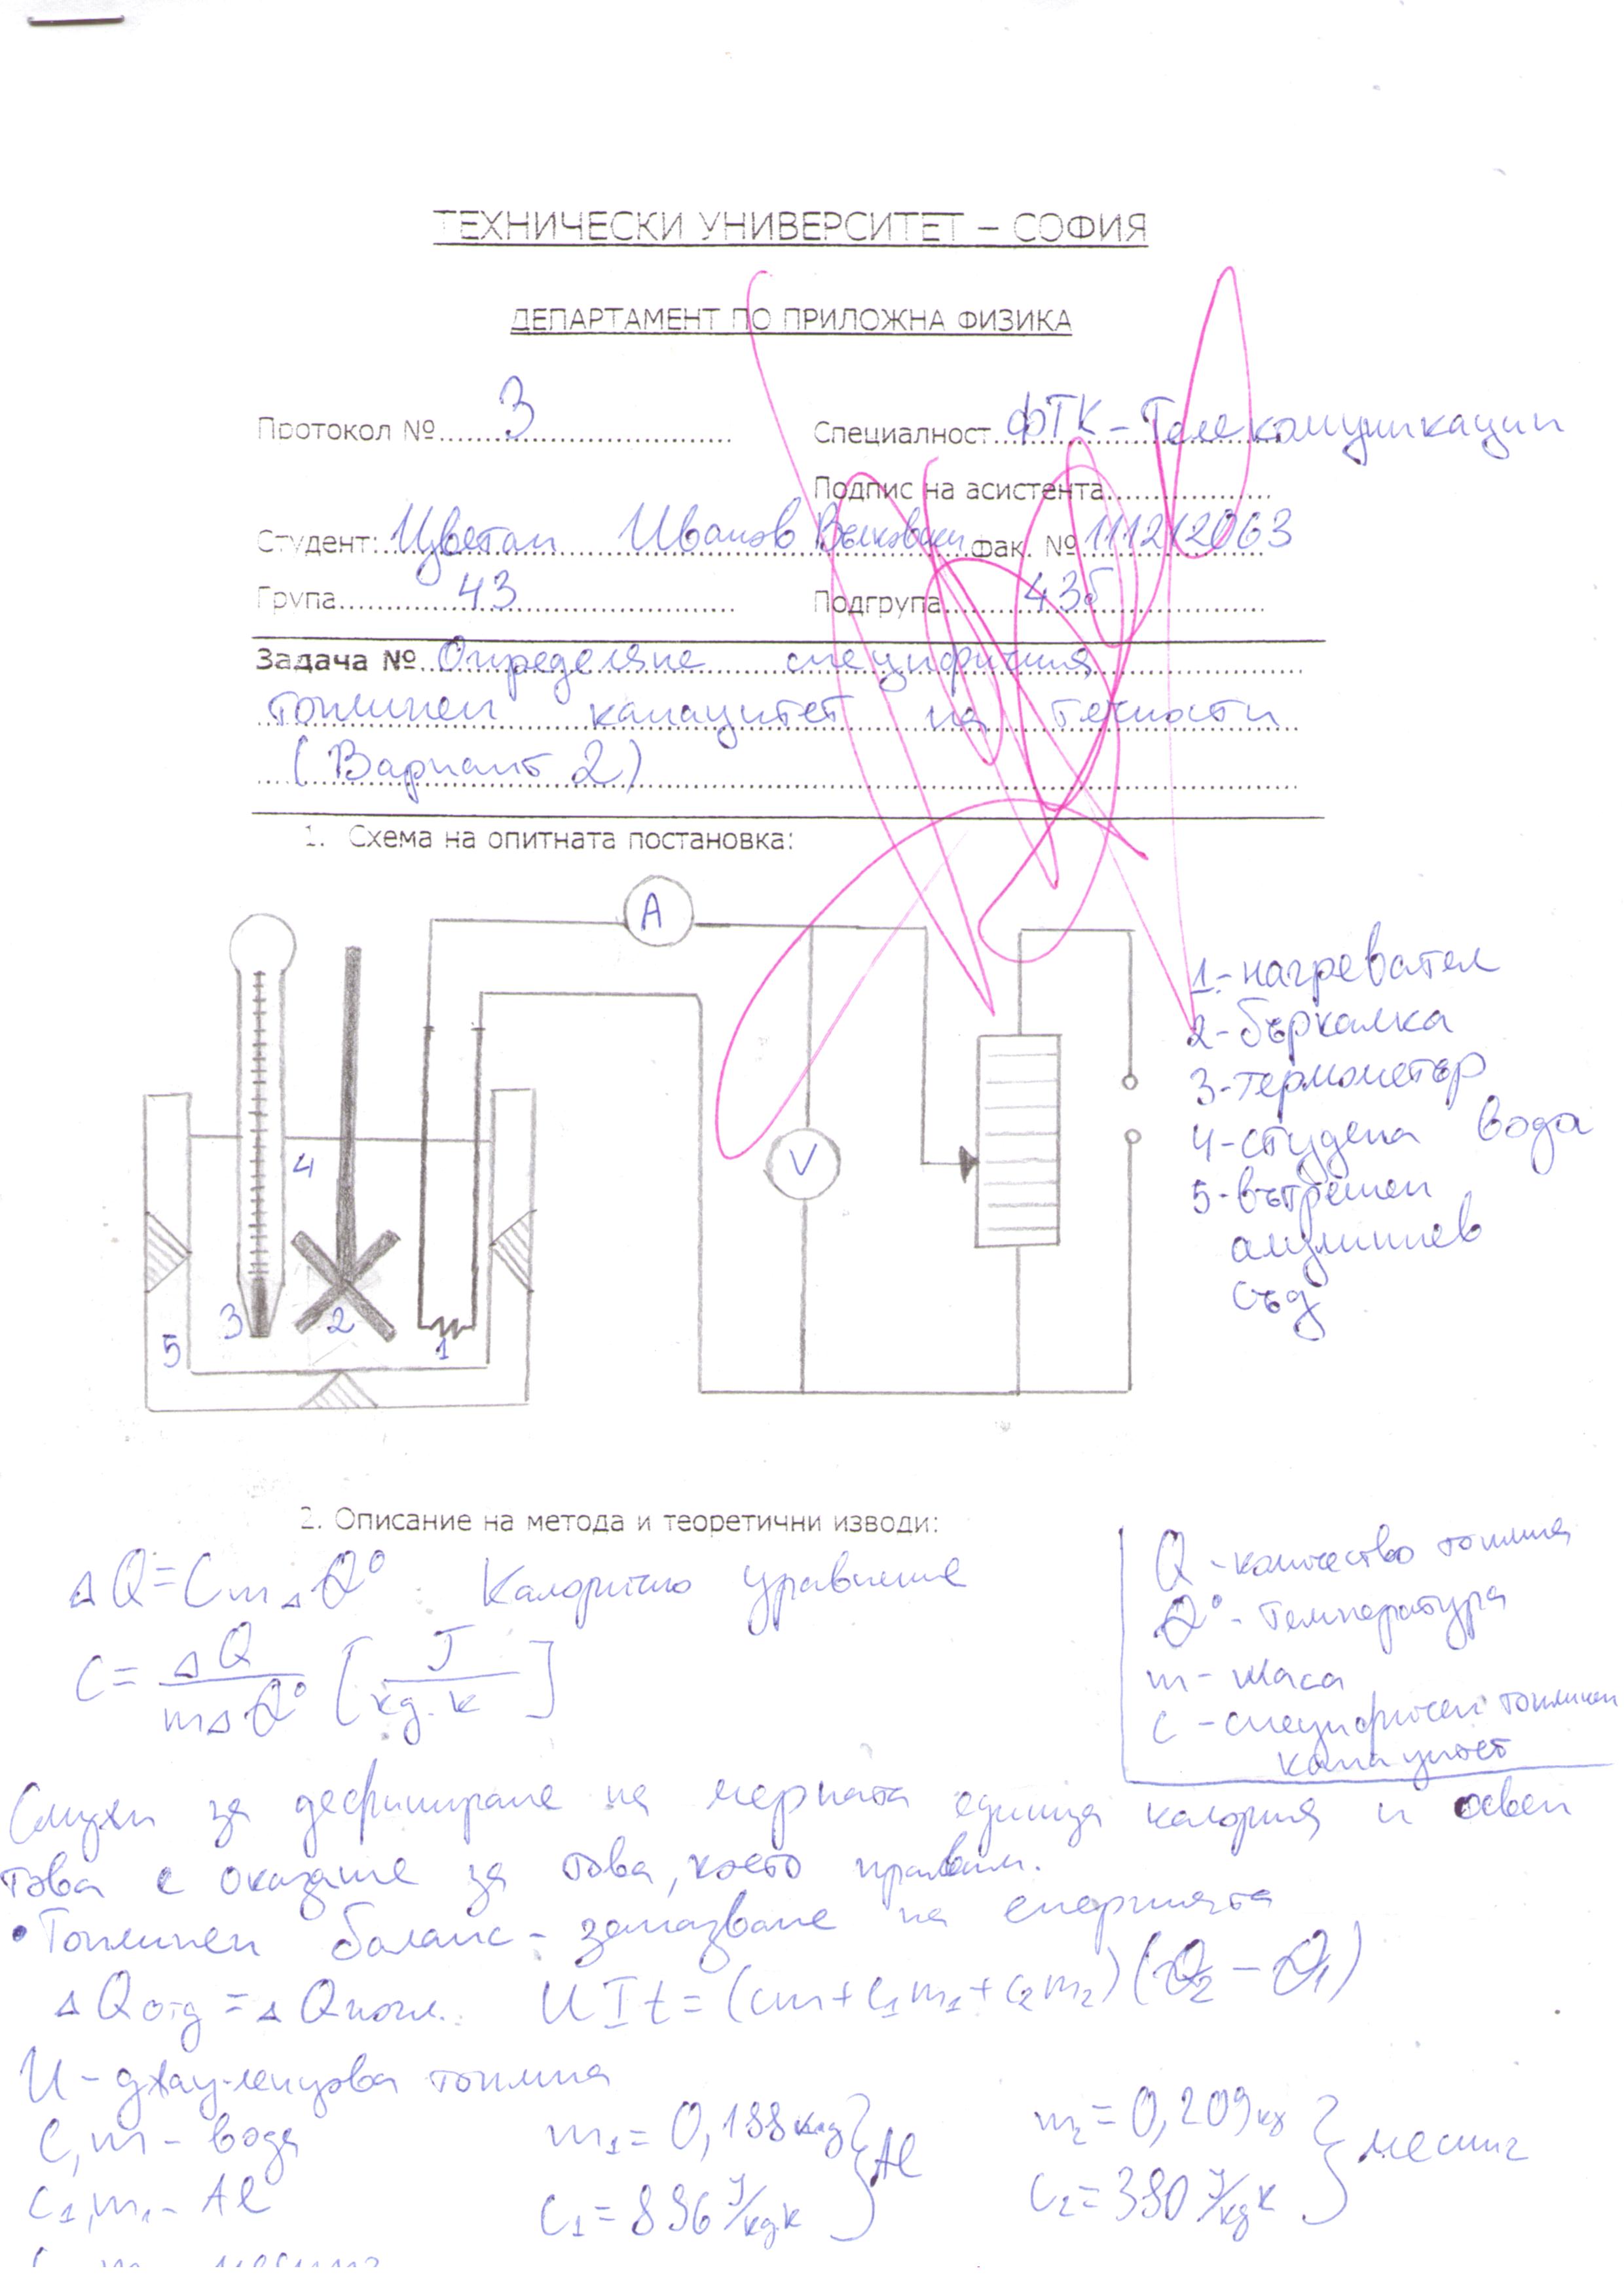 ТЕХНИЧЕСКИ УНИВЕРСИТЕТ – СОФИЯ
ДЕПАРТАМЕНТ ПО ПРИЛОЖНА ФИЗИКА
Протокол № 3 Специалност ФТК - Телекомуникации
Подпис на асистента
Студент: Цветан Иванов Вълковски фак. № 111212063
Група 43 Подгрупа 43б
Задача № Определяне специфичния
топлинен капацитет на течности
(Вариант 2)
1. Схема на опитната постановка:
A
V
1
2
3
4
5
1-нагревател
2-бъркалка
3-термометър
4-студена вода
5-вътрешен
алуминиев
съд
2. Описание на метода и теоретични изводи:
ΔQ=CmΔϑ° Калорично уравнение
C= ΔQ/mΔϑ° [J/кg.к]
Q - количество топлина
ϑ° - температура
m - маса
c - специфичен топлинен
капацитет
Служи за дефиниране на мерната единица калория и освен
това е оказание за това, което правим.
• Топлинен баланс - запазване на енергията
ΔQотд = ΔQпогл. UIt=(cm+c₁m₁+c₂m₂)(ϑ₂-ϑ₁)
U - джаул-ленцова топлина
C,m - вода
m₁=0,188кg
m₂=0,209кg
Al
месинг
C₁,m₁- Al
C₁=896 J/кgк
C₂=380 J/кgк